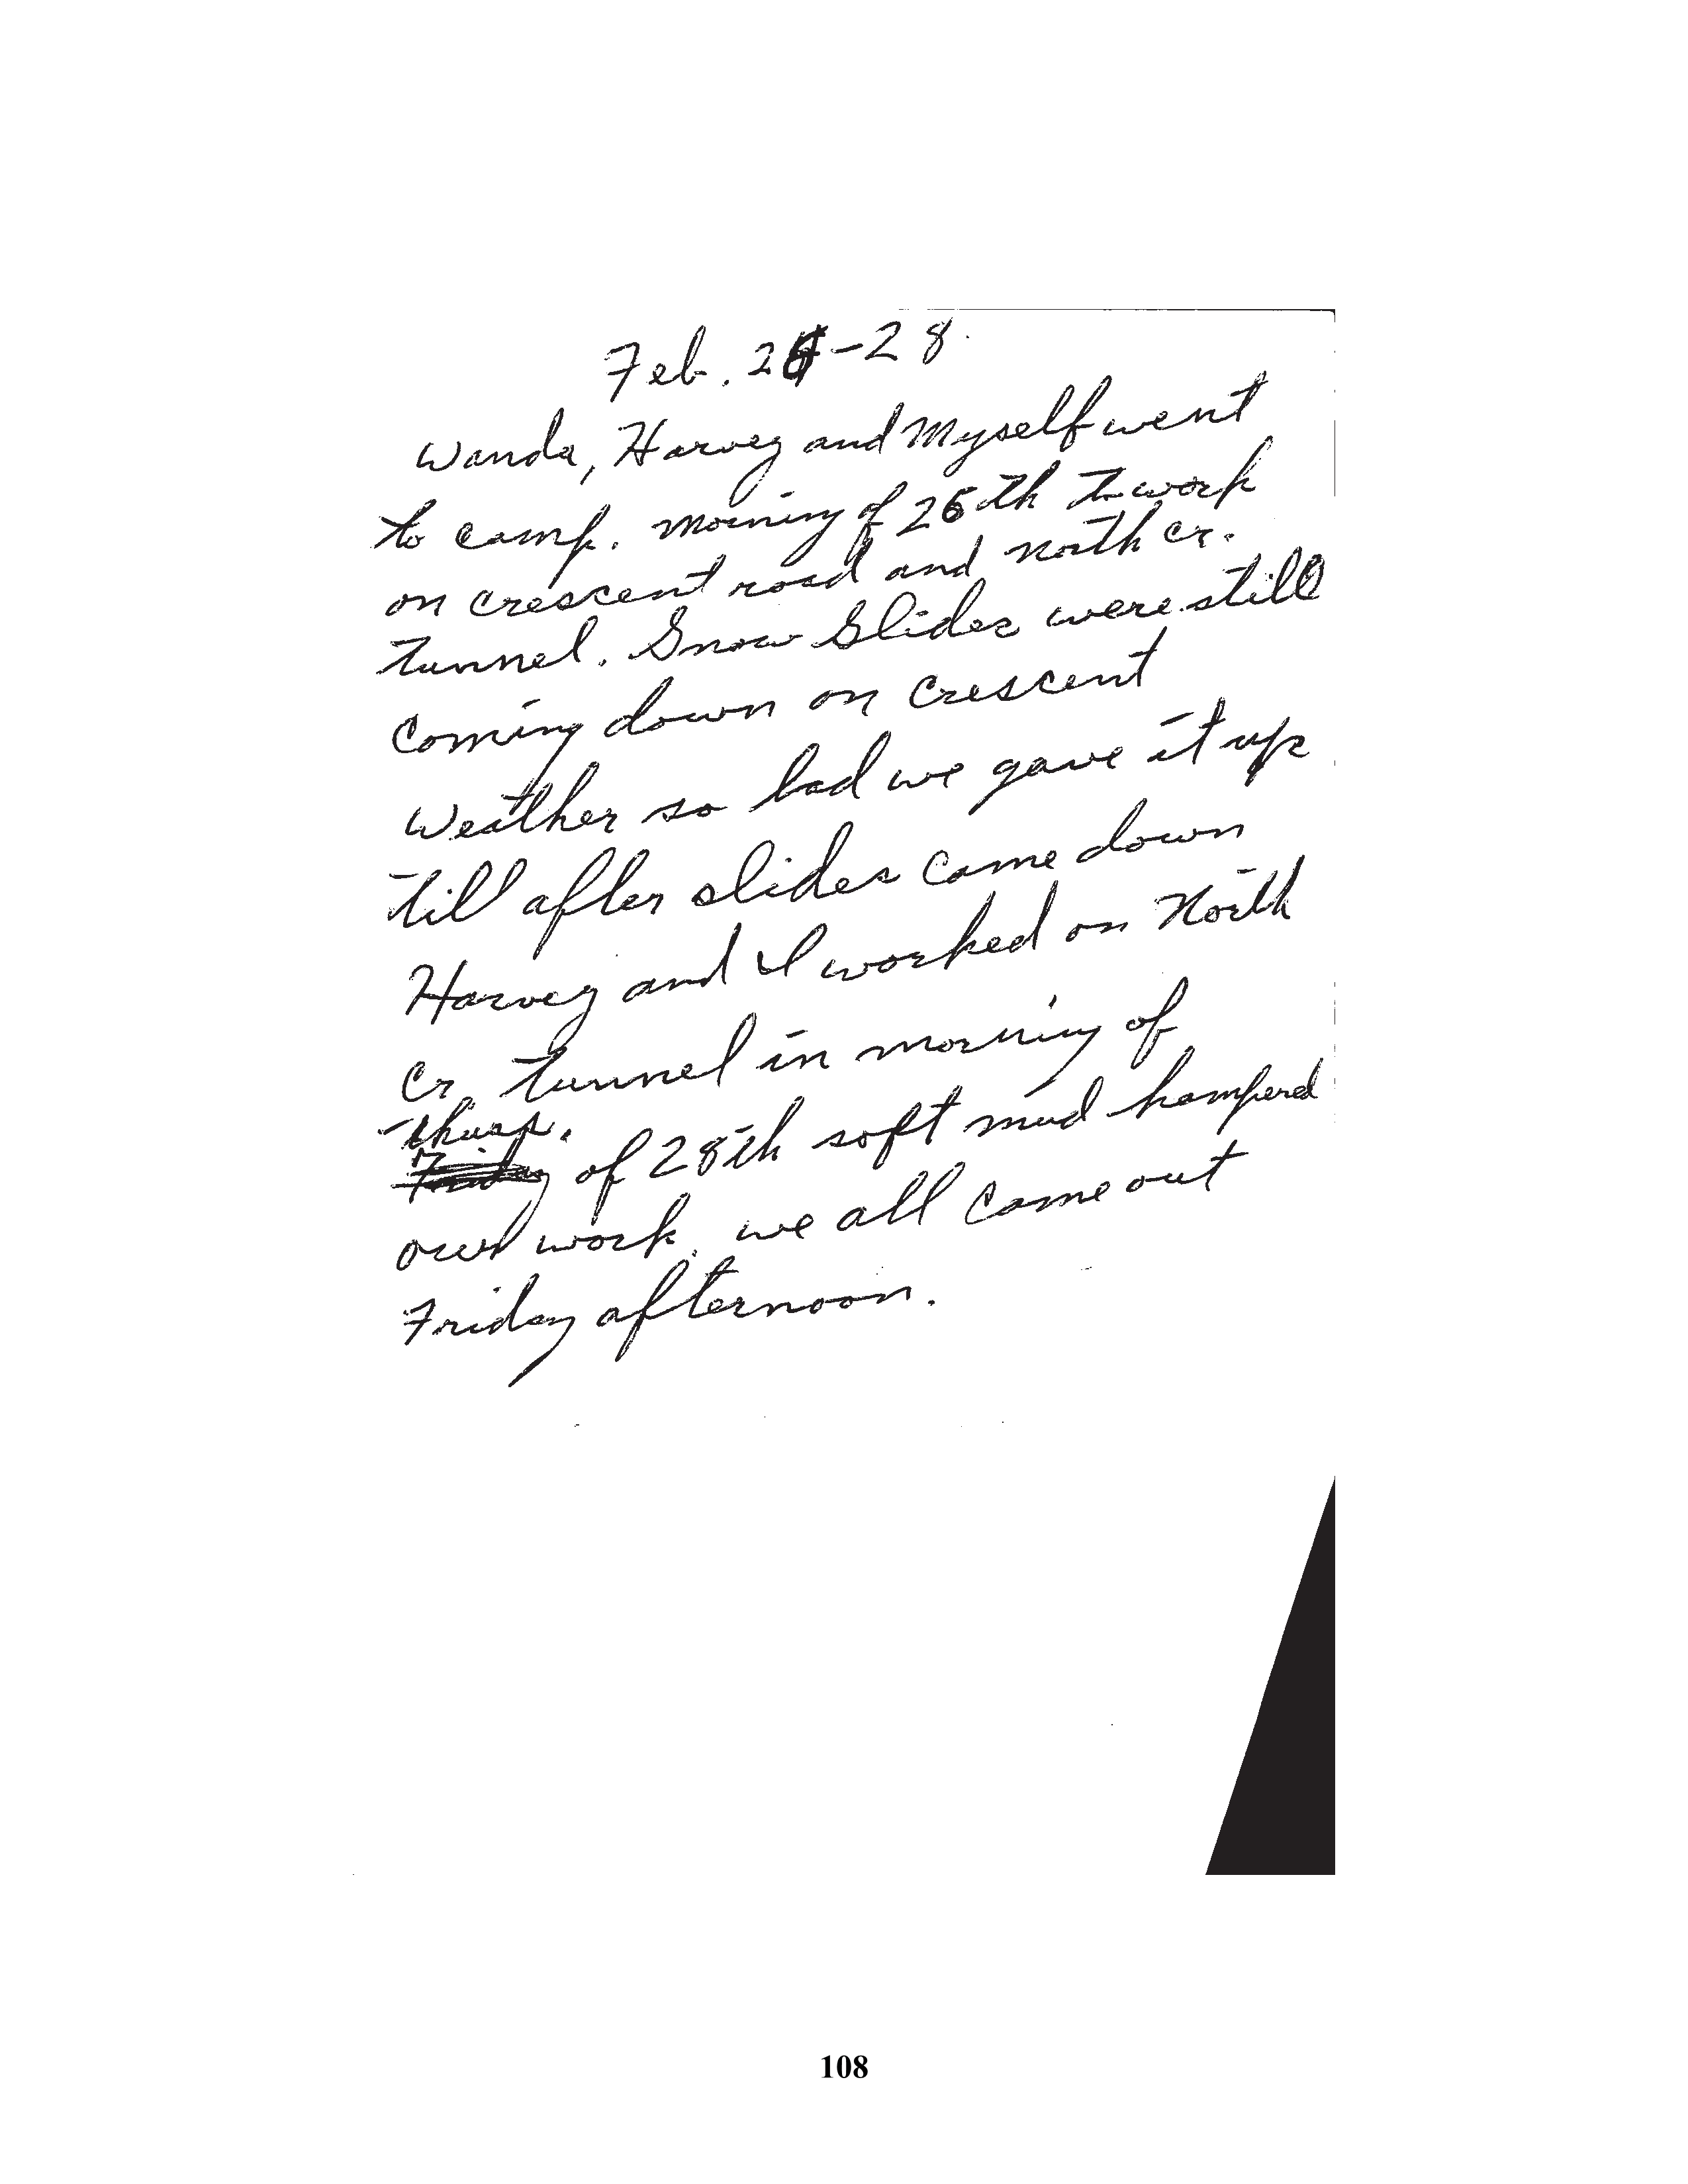 Feb. 26-28.
Wanda, Harvey and Myself went
to camp. morning of 26th to work
on crescent road and north cr.
tunnel. Snow Slides were still
coming down on crescent
weather so bad we gave it up
till after slides came down
Harvey and I worked on North
cr. tunnel in morning of
thurs.
Friday of 28th soft mud hampered
our work. we all came out
Friday afternoon.
108